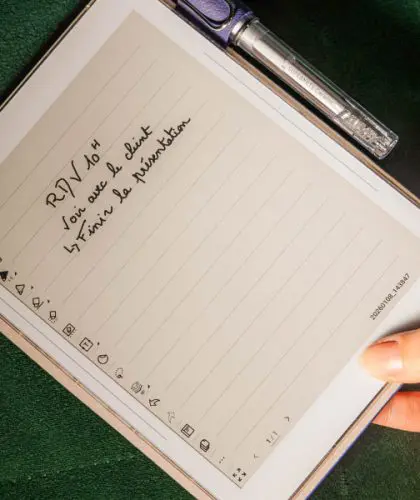 RDV 10H
Voir avec le client
↳ Finir la présentation
20260108_143847
1/1